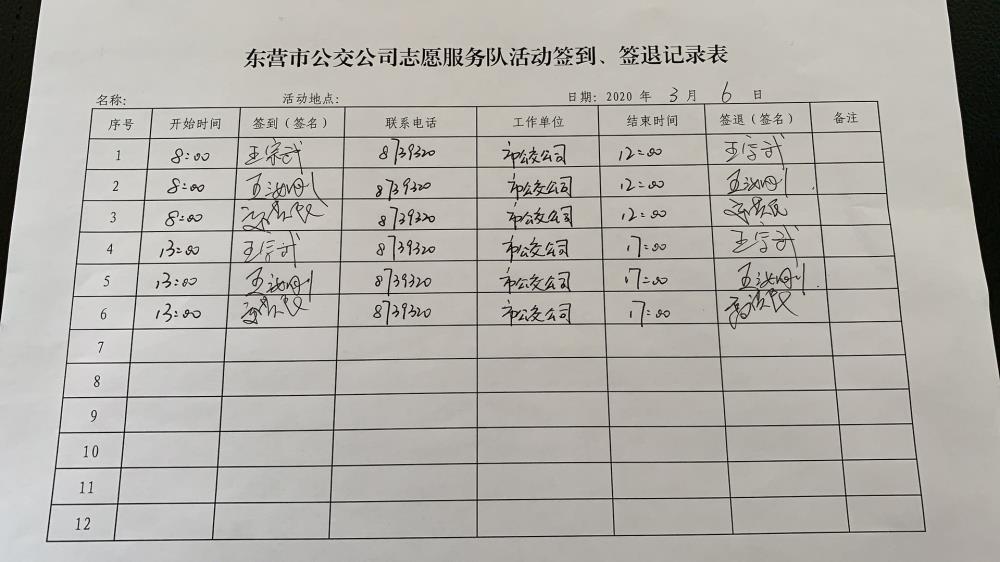 东营市公交公司志愿服务队活动签到、签退记录表
名称: 活动地点: 日期: 2020 年 3 月 6 日
序号 开始时间 签到（签名） 联系电话 工作单位 结束时间 签退（签名） 备注
1 8:00 王宗武 8739320 市公交公司 12:00 王宗武
2 8:00 8739320 市公交公司 12:00
3 8:00 8739320 市公交公司 12:00
4 13:00 王宗武 8739320 市公交公司 17:00 王宗武
5 13:00 8739320 市公交公司 17:00
6 13:00 8739320 市公交公司 17:00
7
8
9
10
11
12